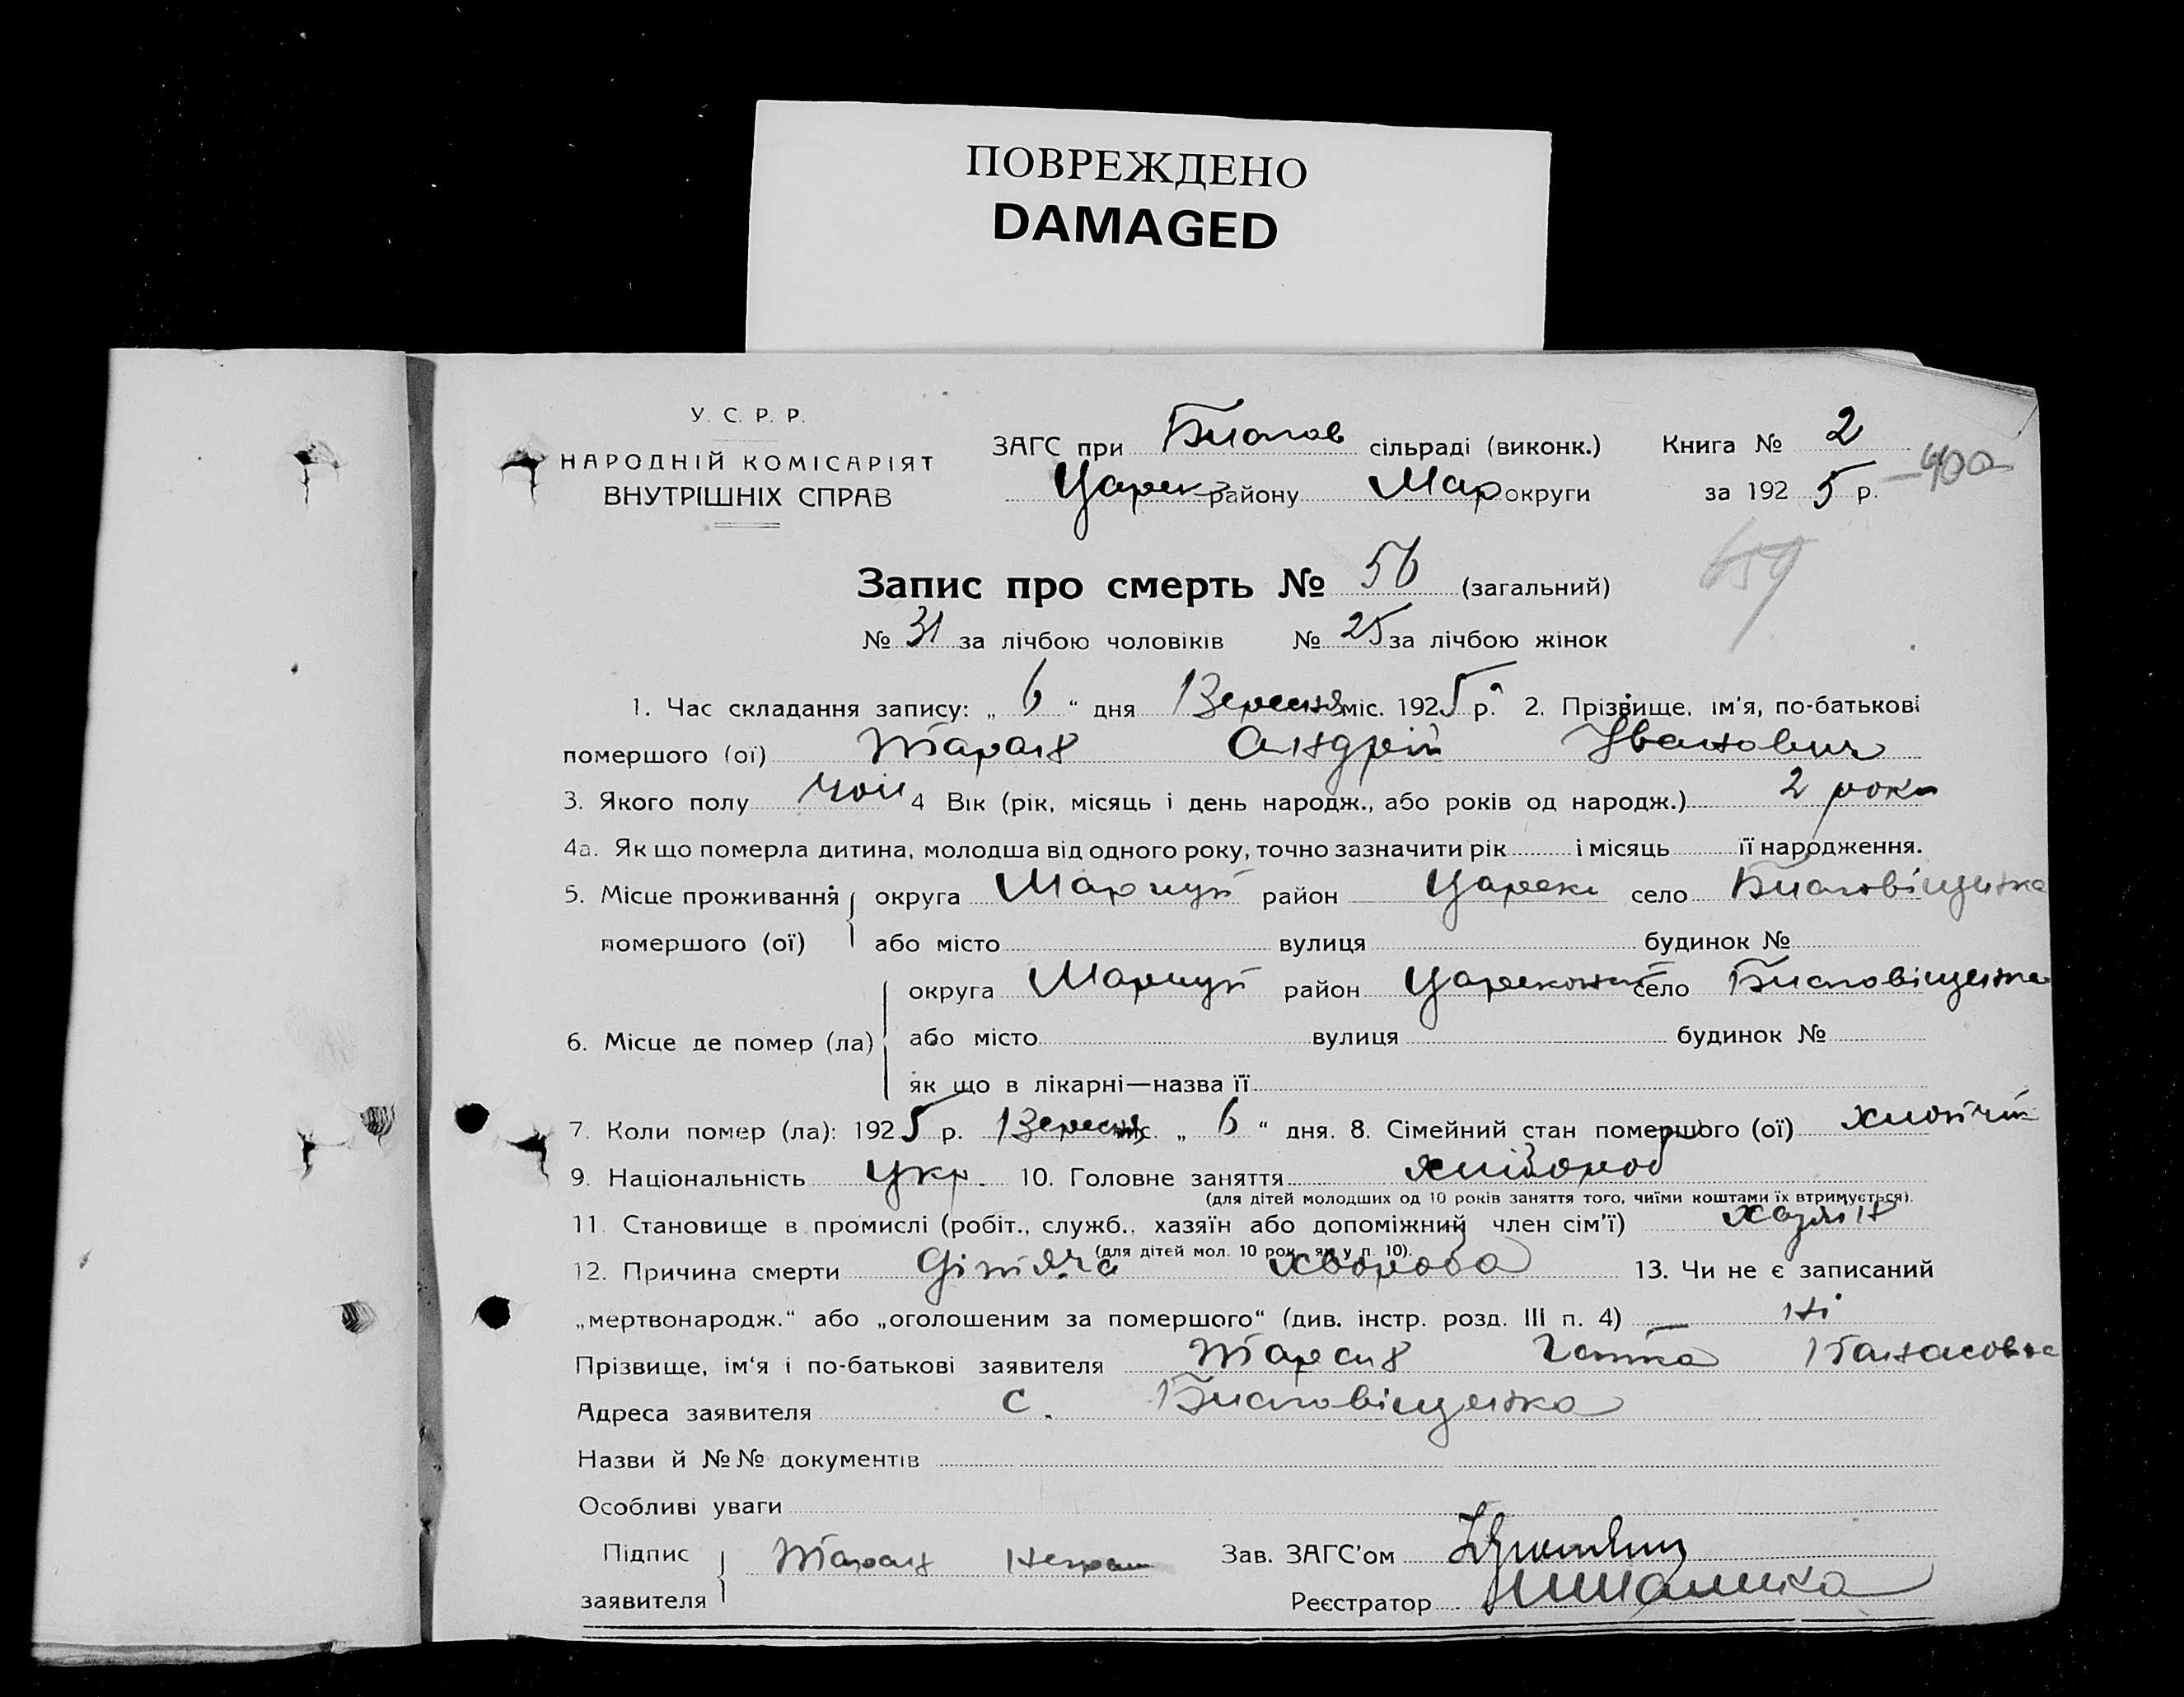 ПОВРЕЖДЕНО
DAMAGED
У. С. Р. Р.
НАРОДНІЙ КОМІСАРІЯТ
ВНУТРІШНІХ СПРАВ
ЗАГС при Благов сільраді (виконк.) Книга № 2
Царек району Мар округи за 1925 р. 400
Запис про смерть № 56 (загальний)
№ 31 за лічбою чоловіків № 25 за лічбою жінок
1. Час складання запису: „ 6 “ дня Вересня міс. 1925 р. 2. Прізвище, ім'я, по-батькові
помершого (ої) Таран Андрій Іванович
3. Якого полу чол 4 Вік (рік, місяць і день народж., або років од народж.) 2 роки
4а. Як що померла дитина, молодша від одного року, точно зазначити рік і місяць її народження.
5. Місце проживання округа Маріуп район Царек село Благовіщенка
помершого (ої) або місто вулиця будинок №
округа Маріуп район Царекон село Благовіщенка
6. Місце де помер (ла) або місто вулиця будинок №
як що в лікарні—назва її
7. Коли помер (ла): 1925 р. Вересня міс. „ 6 “ дня. 8. Сімейний стан помершого (ої) хлопчик
9. Національність Укр. 10. Головне заняття хлібороб
(для дітей молодших од 10 років заняття того, чиїми коштами їх втримується).
11. Становище в промислі (робіт., служб., хазяїн або допоміжний член сім'ї) хазяїн
(для дітей мол. 10 рок. як у п. 10).
12. Причина смерти Дітяча хвороба 13. Чи не є записаний
„мертвонародж.“ або „оголошеним за помершого“ (див. інстр. розд. III п. 4) ні
Прізвище, ім'я і по-батькові заявителя Таран
Адреса заявителя с. Благовіщенка
Назви й №№ документів
Особливі уваги
Підпис Таран Зав. ЗАГС'ом
заявителя Реєстратор